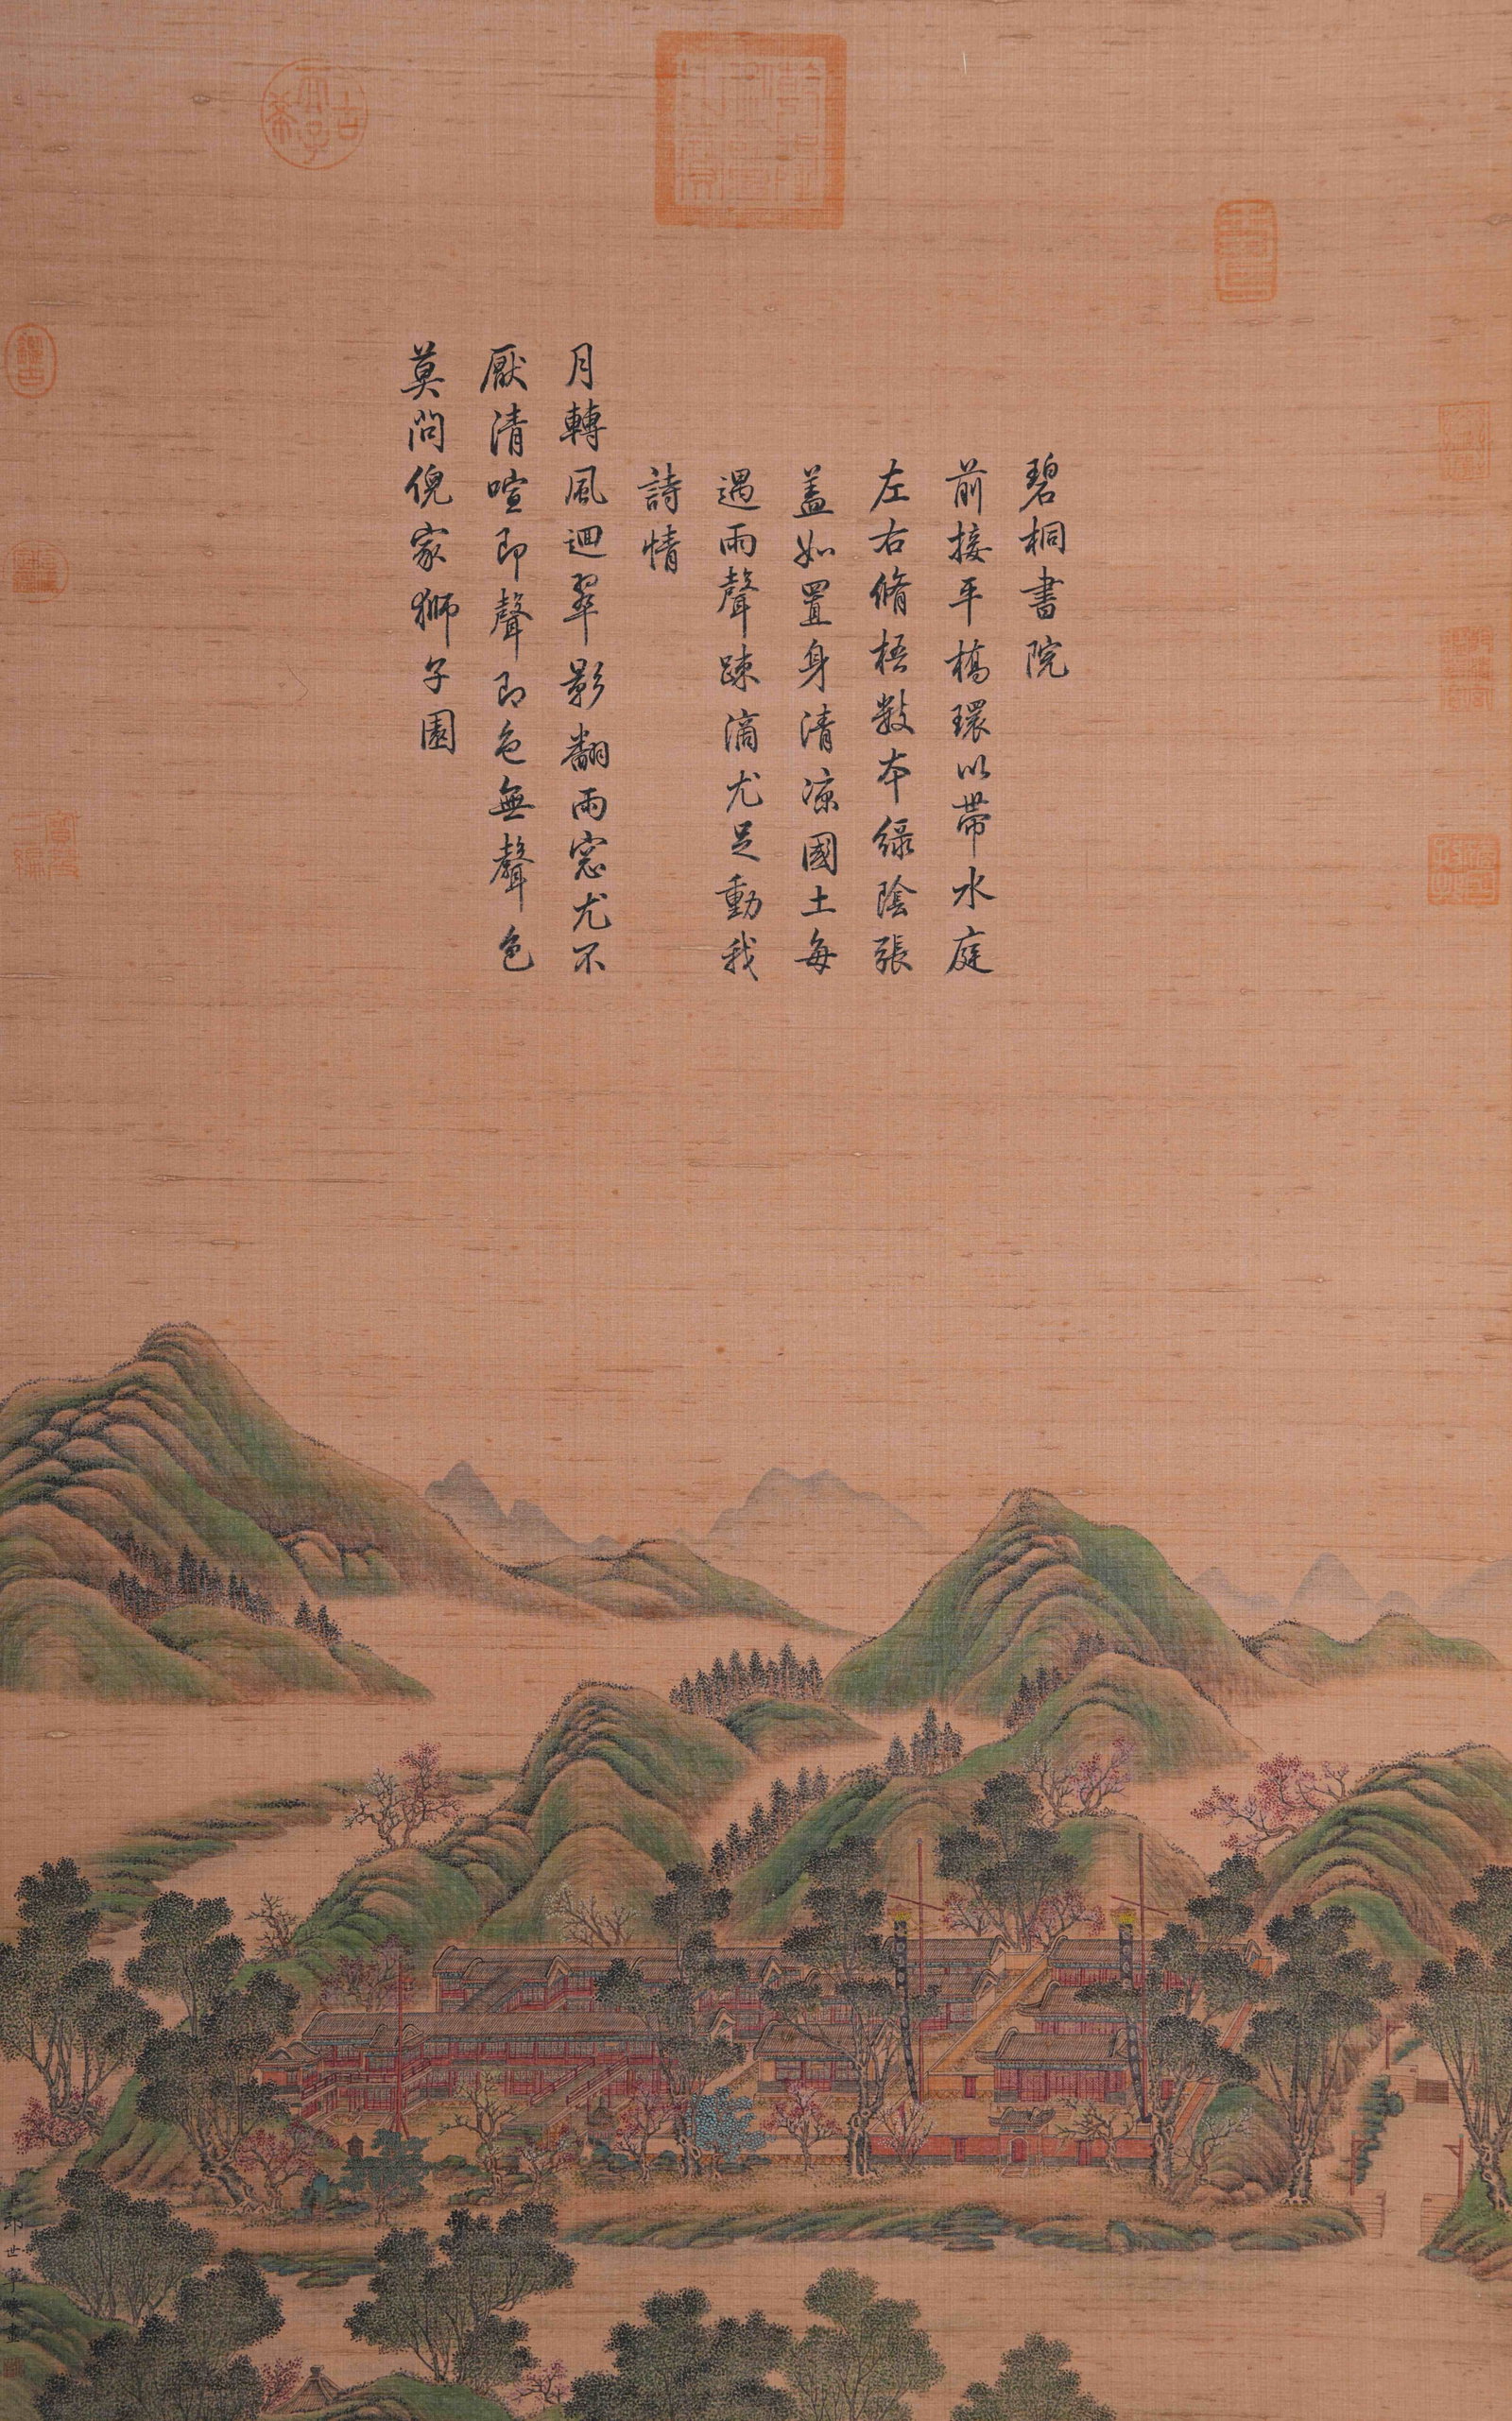 乾隆御覽之寶
古希天子
碧桐書院
前接平橋環以帶水庭
左右脩梧數本綠陰張
蓋如置身清涼國土每
遇雨聲踈滴尤足動我
詩情
月轉風迴翠影翻雨窓尤不
厭清喧即聲即色無聲色
莫問倪家獅子園
寶笈三編
郎世寧